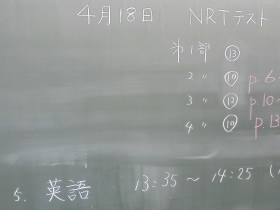 4月18日 NRTテスト
第1部 ⑬
2 〃 p.6
3 〃 p.10
4 〃 p.13
5. 英語 13:35 ~ 14:25